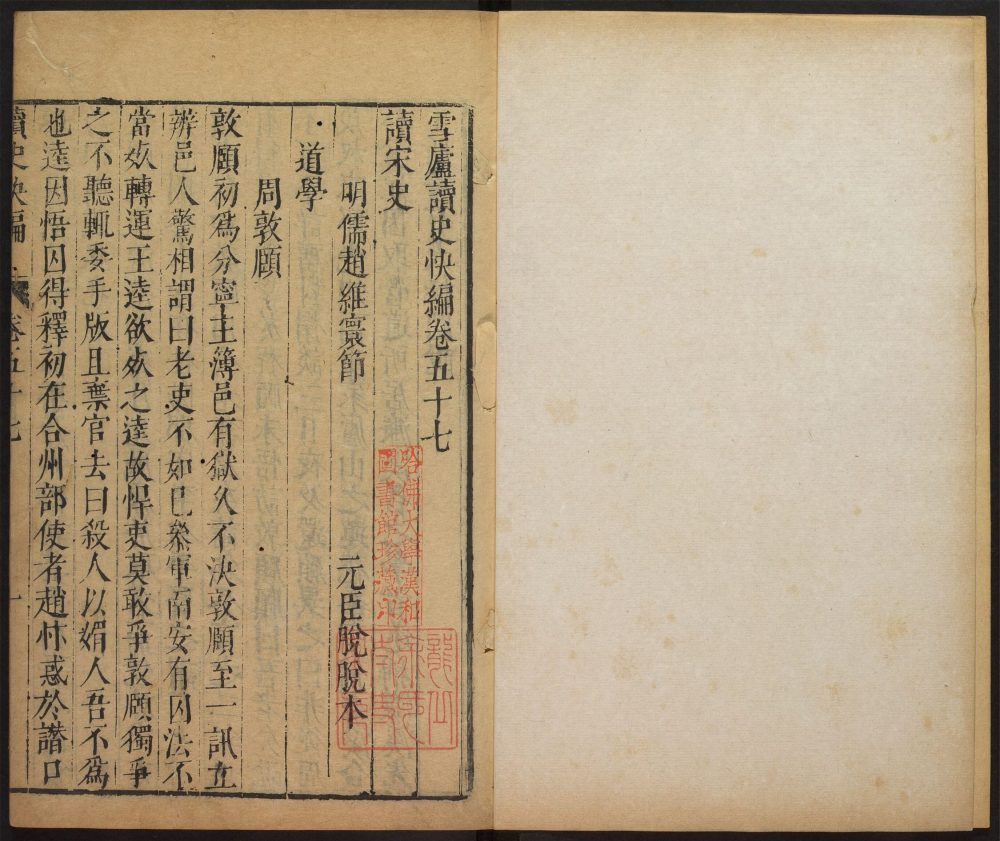 雪廬讀史快編卷五十七
讀宋史
明儒趙維寰節
元臣脫脫本
道學
周敦頤
敦頤初爲分寧主簿邑有獄久不決敦頤至一訊立
辨邑人驚相謂曰老吏不如已叅軍南安有囚法不
當死轉運王逵欲死之逵故悍吏莫敢爭敦頤獨爭
之不聽輒委手版且棄官去曰殺人以媚人吾不爲
也逵因悟囚得釋初在合州部使者趙忭惑於譖口
讀史快編
卷五十七
一
哈佛大學漢和
圖書館珍藏印